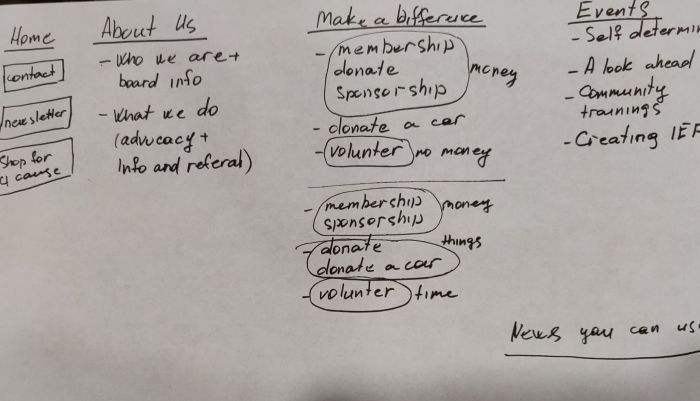 Home
contact
newsletter
Shop for
a cause
About Us
- Who we are +
board info
- What we do
(advocacy +
Info and referal)
Make a difference
- membership
donate
sponsorship
money
- donate a car
- volunter no money
- membership
sponsorship
money
- donate
donate a car
things
- volunter time
Events
- Self determin
- A look ahead
- Community
trainings
- Creating IEP
News you can us